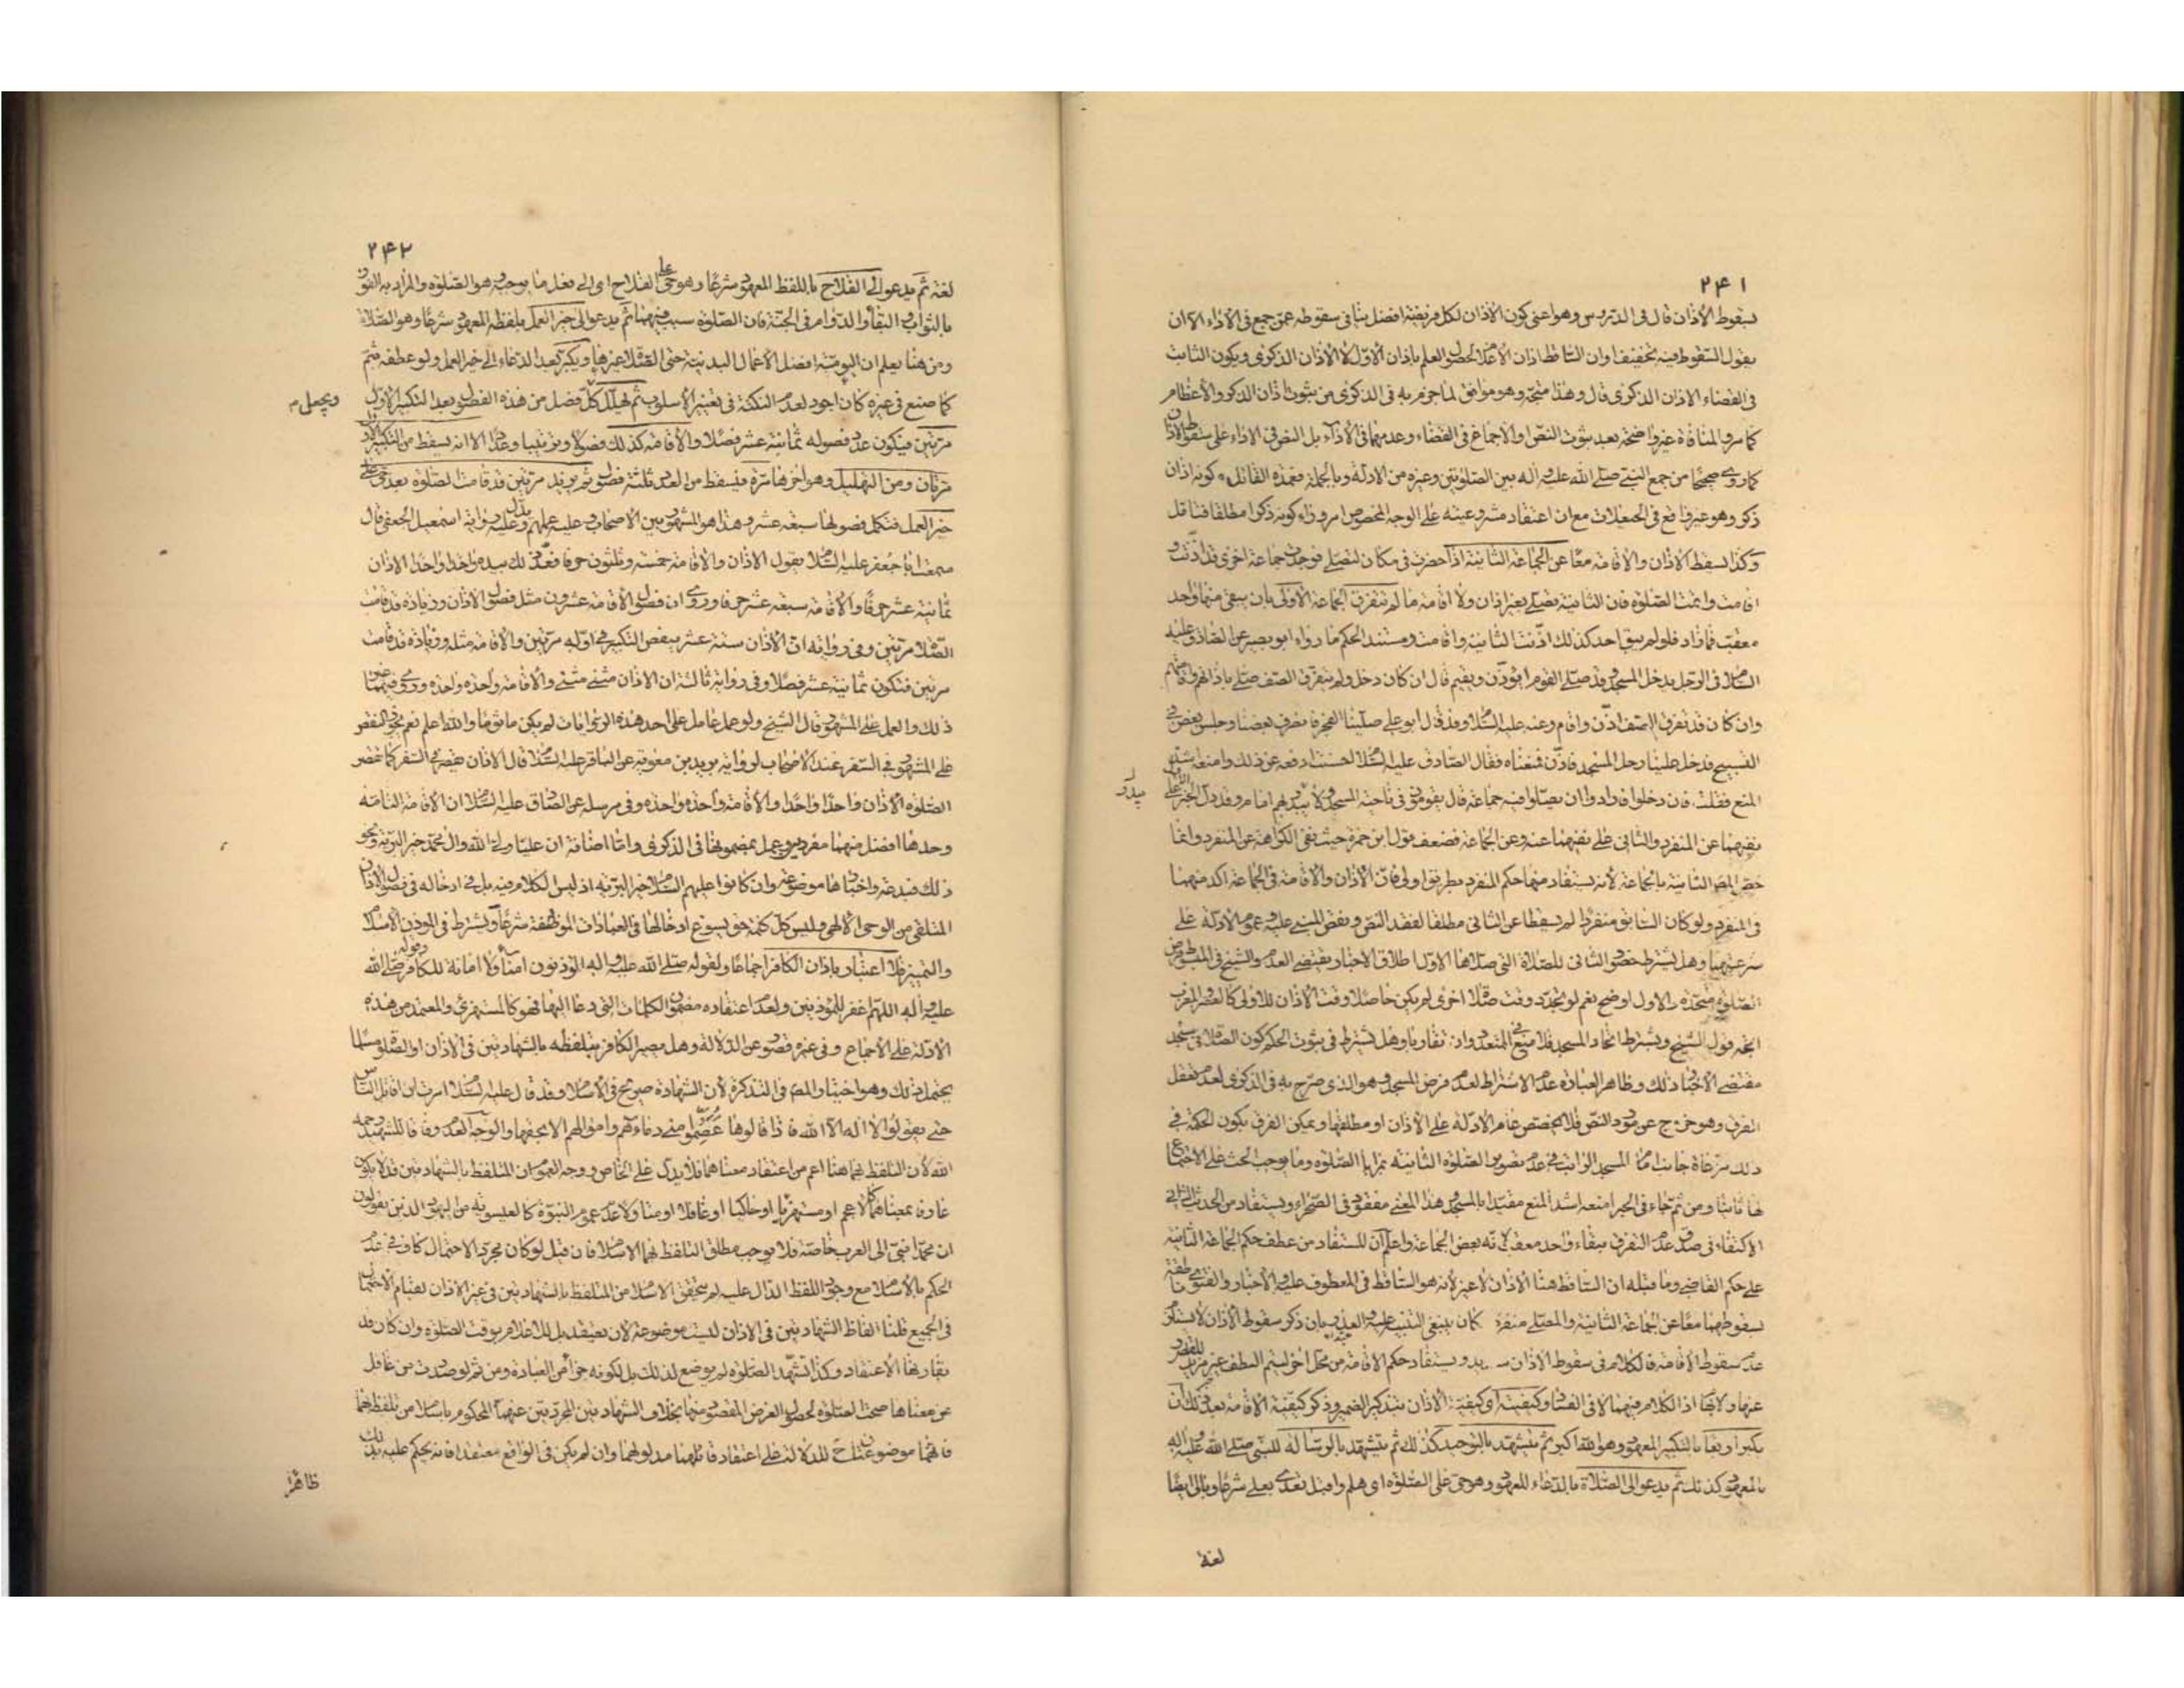 ٢۴١
لسقوط الأذان قال في الدروس وهو اعني كون الأذان لكل فريضة افضل ينافي سقوطه عمن جمع في الأداء الا ان
يقول السقوط فيه تخفيف او ان الساقط اذان الاعلام لحصول العلم باذان الاول لا الأذان الذكرى ويكون الثابت
في القضاء الاذان الذكرى قال وهذا متجه وهو موافق لما جزم به في الذكرى من ثبوت اذان الذكر والاعظام
كما مر والمنافاة غير واضحة بعد ثبوت النص او الاجماع في القضاء وعدمهما في الأداء بل النص في الاداء على سقوط الاذان
كما روى صحيحا من جمع النبي صلى الله عليه وآله بين الصلوتين وغيره من الادلة وبالجملة فعمدة القائل كونه اذان
ذكر وهو غير واقع في الحيعلات مع ان اعتقاد مشروعيته على الوجه المخصوص امر وراء كونه ذكرا مطلقا فتأمل
وكذا يسقط الاذان والاقامة معا عن الجماعة الثانية اذا حضرت في مكان لتصلي فوجدت جماعة اخرى قد اذنت و
اقامت واتمت الصلوة فان الثانية تصلي بغير اذان ولا اقامة ما لم تتفرق الجماعة الاولى بان يبقى منها واحد
معقب فما زاد فلو لم يبق احد كذلك اذنت الثانية واقامت ومستند الحكم ما رواه ابو بصير عن الصادق عليه
السلام في الرجل يدخل المسجد وقد صلى القوم ايؤذن ويقيم قال ان كان دخل ولم يتفرق الصف صلى باذانهم واقامتهم
وان كان قد تفرق الصف اذن واقام وعنه عليه السلام وقد قال ابو علي صلينا الفجر فانصرف بعضنا وجلس بعض في
التسبيح فدخل علينا رجل المسجد فاذن فمنعناه فقال الصادق عليه السلام احسنت ادفعه عن ذلك وامنعه اشد
المنع فقلت فان دخلوا فارادوا ان يصلوا فيه جماعة قال يقومون في ناحية المسجد ولا يبدر بهم امام وقد دل الخبر الاول على
يبدو
نفيهما عن المنفرد والثاني على نفيهما عنه وعن الجماعة فضعف قول ابن حمزة حيث نفى الكراهة عن المنفرد وانما
خص المص الثانية بالجماعة لانه يستفاد منها حكم المنفرد بطريق اولى فان الأذان والاقامة في الجماعة اكد منهما
في المنفرد ولو كان السابق منفردا لم يسقطا عن الثاني مطلقا لفقد النص ونقض المبني عليه عموم الادلة على
شرعيتهما وهل يشترط حضور الثاني للصلاة التي صلاها الاول اطلاق الاخبار يقتضي العدم والشيخ في المبسوط فرض
الصلوة متحدة والاول اوضح نعم لو تجدد وقت صلاة اخرى لم يكن حاصلا وقت الأذان للاولى كالعصر والمغرب
اتجه قول الشيخ ويشترط اتحاد المسجد فلا منع في المتعدد وان تقاربا وهل يشترط في ثبوت الحكم كون الصلاة في مسجد
مقتضى الاخبار ذلك وظاهر العبارة عدم الاشتراط لعدم فرض المسجد وهو الذي صرح به في الذكرى لعدم تعقل
الفرق وهو خروج عن مورد النص فلا يخصص عام الادلة على الأذان او مطلقها ويمكن الفرق بكون الحكمة في
ذلك مراعاة جانب امام المسجد الراتب في عدم تصوير الصلوة الثانية بمزايا الصلوة وما يوجب الحث على الاجتماع
لها ثانيا ومن ثم جاء في الخبر امنعه اشد المنع مقيدا بالمسجد وهذا المعنى مفقود في الصحراء ويستفاد من الحديث الثاني
الاكتفاء في صدق عدم التفرق ببقاء واحد معقب لانه بعض الجماعة واعلم ان المستفاد من عطف حكم الجماعة الثانية
على حكم القاضي وما قبله ان الساقط هنا الأذان لا غير لانه هو الساقط في المعطوف عليه والاخبار والفتوى ناطقة
بسقوطهما معا عن الجماعة الثانية والمصلي منفردا كان ينبغي التنبيه عليه والعذر بان ذكر سقوط الأذان لا يستلزم
عدم سقوط الاقامة فالكلام في سقوط الاذان ويستفاد حكم الاقامة من محل اخر لستم العطف غير مزيل للقصور
عنها ولا بها اذ الكلام فيهما لا في القضاء وكيفيته اي كيفية الأذان بتذكير الضمير وذكر كيفية الاقامة بعد ذلك ان
يكبر اربعا بالتكبير المعهود وهو الله اكبر ثم يتشهد بالتوحيد كذلك ثم يتشهد بالرسالة للنبي صلى الله عليه وآله
بالمعهود كذلك ثم يدعو الى الصلاة بالدعاء المعهود وهو حي على الصلوة اي هلم واقبل تعدى بعلى شرعا وبالى ايضا
لغة
٢۴٢
لغة ثم يدعو الى الفلاح باللفظ المعهود شرعا وهو حي على الفلاح اي الى فعل ما يوجبه وهو الصلوة والمراد به الفوز
بالثواب والبقاء والدوام في الجنة فان الصلوة سبب فيهما ثم يدعو الى خير العمل بلفظه المعهود شرعا وهو الصلاة
ومن هنا يعلم ان اليومية افضل الأعمال البدنية حتى الصلاة غيرها ويكبر بعد الدعاء الى خير العمل ولو عطفه بثم
كما صنع في غيره كان اجود لعدم النكتة في تغيير الأسلوب ثم يهلل كل فصل من هذه الفصول بعد التكبير الأول
ويجعل م
مرتين فيكون عدد فصوله ثمانية عشر فصلا والاقامة كذلك فصولا وترتيبا وعددا الا انه يسقط من التكبير الأول
مرتان ومن التهليل وهو اخرها مرة فيسقط من العدد ثلثة فصول ثم يزيد مرتين قد قامت الصلوة بعد حي على
خير العمل فتكمل فصولها سبعة عشر وهذا هو المشهور بين الاصحاب وعليه عملهم وعليه يدل رواية اسمعيل الجعفي قال
سمعت ابا جعفر عليه السلام يقول الاذان والاقامة خمسة وثلثون حرفا فعد ذلك بيده واحدا واحدا الاذان
ثمانية عشر حرفا والاقامة سبعة عشر حرفا وروى ان فصول الأقامة عشرون مثل فصول الاذان وزيادة قد قامت
الصلاة مرتين وفي رواية ان الأذان ستة عشر بنقص التكبير في اوله مرتين والاقامة مثله وزيادة قد قامت
مرتين فتكون ثمانية عشر فصلا وفي رواية ثالثة ان الاذان مثنى مثنى والأقامة واحدة واحدة وروى فيهما غير
ذلك والعمل على المشهور قال الشيخ ولو عمل عامل على احد هذه الروايات لم يكن ماثوما والله اعلم نعم يجوز النقص
على المشهور في السفر عند الأصحاب لرواية بريد بن معوية عن الباقر عليه السلام قال الاذان يقصر في السفر كما تقصر
الصلوة الأذان واحدا واحدا والأقامة واحدة واحدة وفي مرسله عن الصادق عليه السلام ان الأقامة التامة
وحدها افضل منهما مفردين وعمل بمضمونها في الذكرى واما اضافة ان عليا ولي الله وال محمد خير البرية ونحو
ذلك فبدعة واخبارها موضوعة وان كانوا عليهم السلام خير البرية اذ ليس الكلام فيه بل في ادخاله في فصول الأذان
المتلقى من الوحي الالهي وليس كل كلمة حق يسوغ ادخالها في العبادات الموظفة شرعا ويشترط في المؤذن الاسلام
والتمييز فلا اعتبار باذان الكافر اجماعا ولقوله صلى الله عليه واله المؤذنون امناء ولا امانة للكافر وقوله صلى الله
عليه وآله اللهم اغفر للمؤذنين ولعدم اعتقاده مضمون الكلمات التي دعا اليها فهو كالمستهزئ والمعتمد من هذه
الأدلة على الأجماع وفي غيره قصور عن الدلالة وهل يصير الكافر بتلفظه بالشهادتين في الاذان او الصلوة مسلما
يحتمل ذلك وهو اختيار المص في التذكرة لأن الشهادة صريح في الأسلام وقد قال عليه السلام امرت ان اقاتل الناس
حتى يقولوا لا اله الا الله فاذا قالوها عصموا مني دماءهم واموالهم الا بحقها والوجه العدم وفاقا للشهيد رحمه
الله لان التلفظ بهما هنا اعم من اعتقاد معناهما فلا يدل على الخاص ووجه العموم ان المتلفظ بالشهادتين قد لا يكون
عارفا بمعناهما كالاعجم او مستهزئا او حاكيا او غافلا او متاولا عدم عموم النبوة كالعيسوية من اليهود الذين يقولون
ان محمدا نبي الى العرب خاصة فلا يوجب مطلق التلفظ بهما الاسلام فان قيل لو كان مجرد الاحتمال كاف في عدم
الحكم بالأسلام مع وجود اللفظ الدال عليه لم يتحقق الاسلام من المتلفظ بالشهادتين في غير الاذان لقيام الاحتمال
في الجميع قلنا الفاظ الشهادتين في الاذان ليست موضوعة لان يعتقد بل للاعلام بوقت الصلوة وان كان قد
يقارنها الأعتقاد وكذا تشهد الصلوة لم يوضع لذلك بل لكونه جزأ من العبادة ومن ثم لو صدرت من غافل
عن معناها صحت الصلوة لحصول الغرض المقصود منها بخلاف الشهادتين المجردتين عنهما المحكوم باسلام من تلفظ بهما
فانهما موضوعتان للدلالة على اعتقاد قائلهما مدلولهما وان لم يكن في الواقع معتقدا فانه يحكم عليه بذلك
ظاهرا